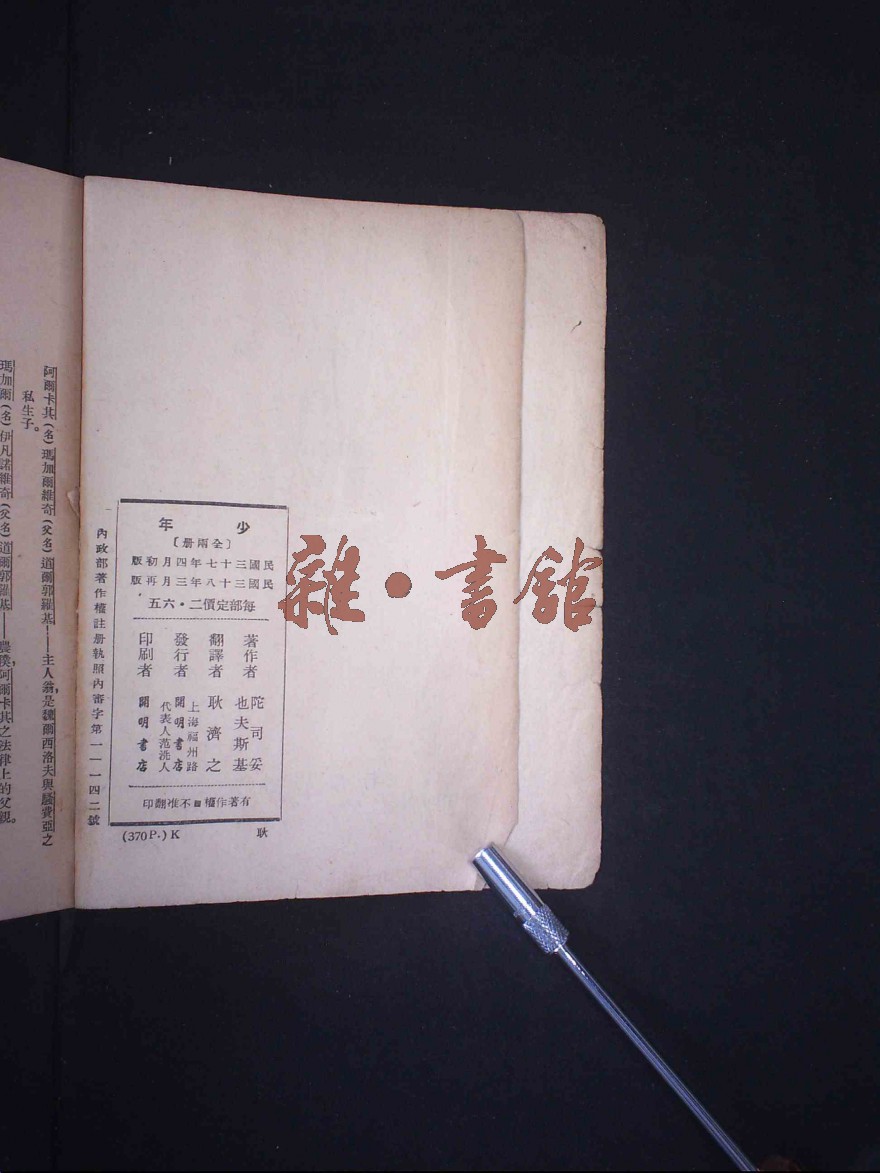 少年
〔全兩册〕
民國三十七年四月初版
民國三十八年三月再版
每部定價二·六五
著作者 陀司妥也夫斯基
翻譯者 耿濟之
發行者 上海福州路 開明書店 代表人范洗人
印刷者 開明書店
有著作權■不准翻印
內政部著作權註册執照內審字第一一一四二號
(370P.)K 耿
雜·書館
阿爾卡其(名)瑪加爾維奇(父名)道爾郭羅基——主人翁,是魏爾西洛夫與騷費亞之
私生子。
瑪加爾(名)伊凡諾維奇(父名)道爾郭羅基——農隸,阿爾卡其之法律上的父親。